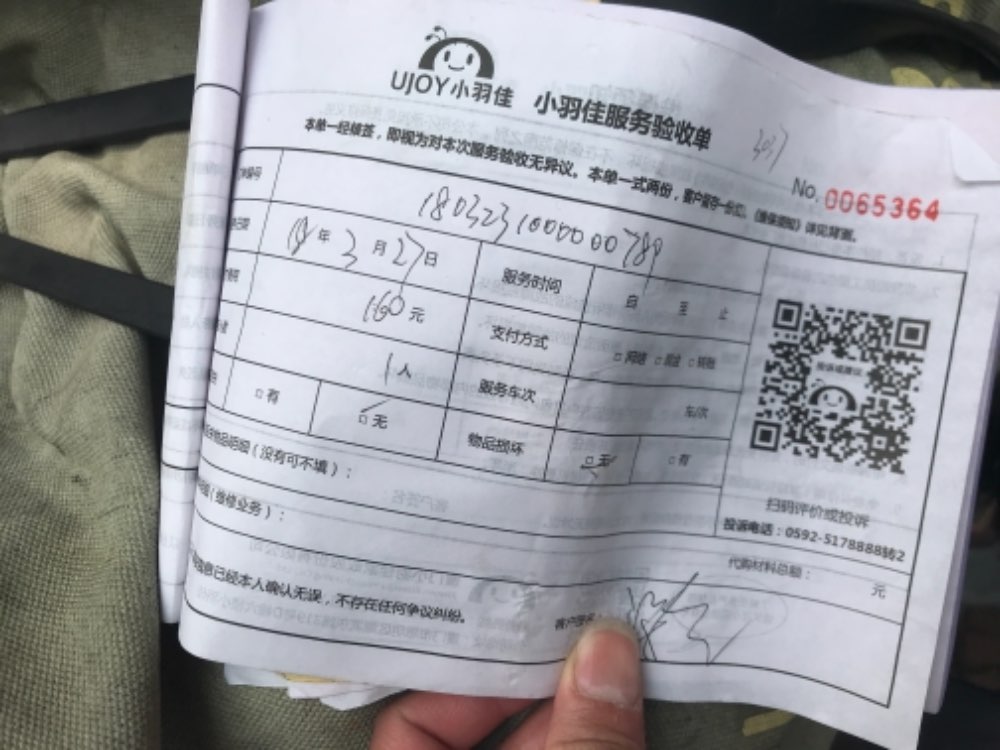 UJOY小羽佳 小羽佳服务验收单
No. 0065364
本单一经核签，即视为对本次服务验收无异议。本单一式两份，客户留存一份，《维保须知》详见背面。
编号 1803231000000789
18年3月27日 服务时间 自 至 止
160元 支付方式 □网络 □现金 □转账
1人 服务车次 车次
□有 □无 物品损坏 □无 □有
物品明细（没有可不填）：
（维修业务）：
扫码评价或投诉
投诉电话：0592-5178888转2
代购材料总额： 元
信息已经本人确认无误，不存在任何争议纠纷。
客户签名